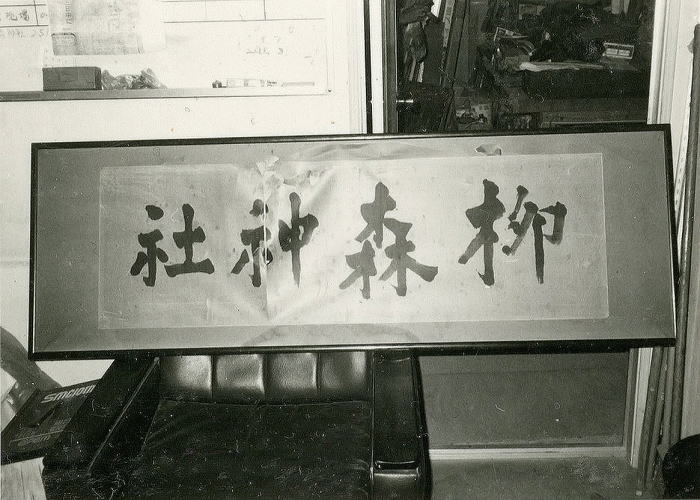 柳森神社